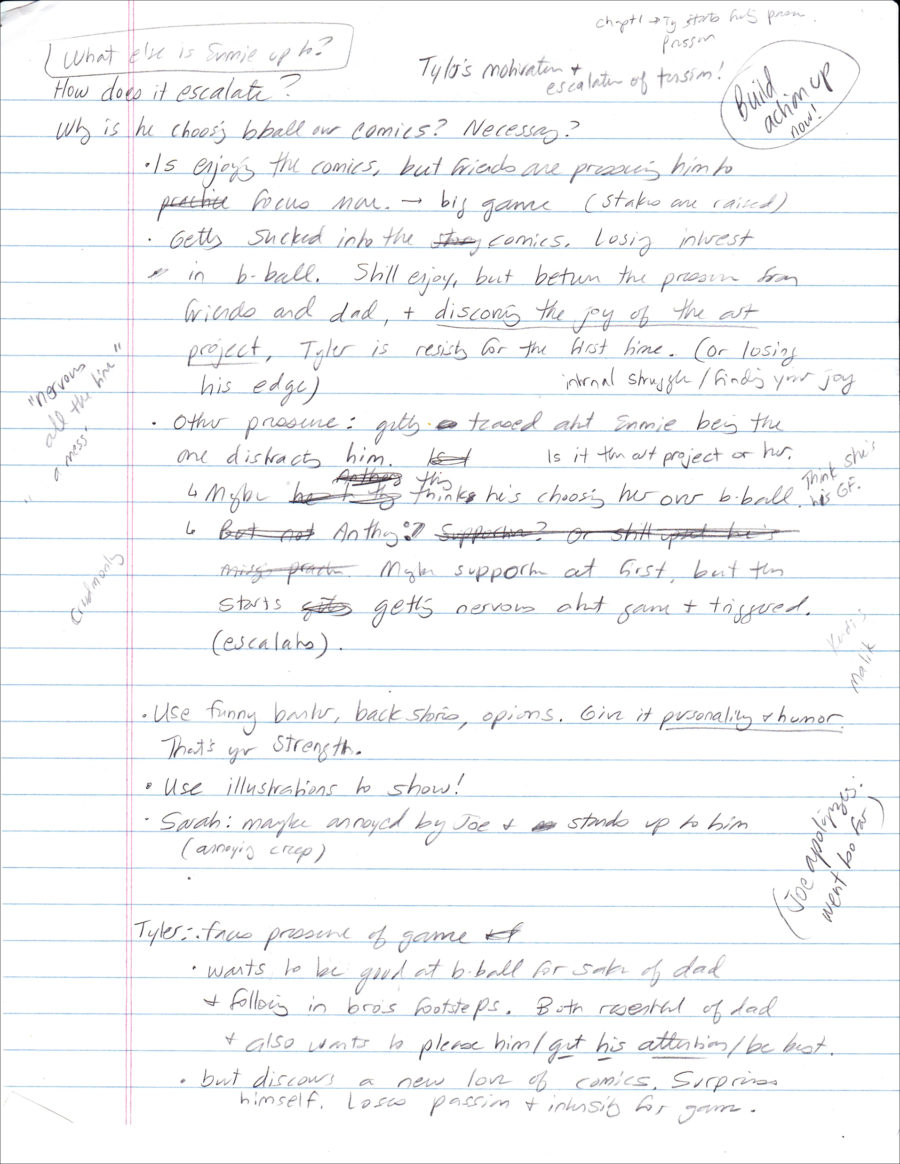 chapt 1 → Ty starts
What else is Emmie up to?
Tyler's motivation +
escalation of tension!
Build
action up
now!
How does it escalate?
Why is he choosing bball over comics? Necessary?
• Is enjoying the comics, but friends are pressuring him to
practice focus more. → big game (stakes are raised)
• Getting sucked into the story comics. Losing interest
in b-ball. Still enjoy, but between the pressure from
friends and dad, + discovering the joy of the art
project, Tyler is resisting for the first time. (or losing
his edge)
internal struggle / finding your joy
"nervous
all the time"
"a mess"
• Other pressure: getting teased abt Emmie being the
one distracting him.
Is it the art project or her.
↳ Maybe they think he's choosing her over b-ball.
Think she's
his GF.
↳ But not Anthony? Supportive? Or still upset he's
missing practice. Maybe supportive at first, but then
starts getting nervous abt game + triggered.
(escalates).
Malik
• Use funny banter, back stories, opinions. Give it personality + humor.
That's yr strength.
• Use illustrations to show!
• Sarah: maybe annoyed by Joe + stands up to him
(annoying creep)
(Joe apologizes.
went too far)
Tyler: faces pressure of game
• wants to be good at b-ball for sake of dad
+ following in bro's footsteps. Both resentful of dad
+ also wants to please him/get his attention/be best.
• but discovers a new love of comics. Surprises
himself. Loses passion + intensity for game.